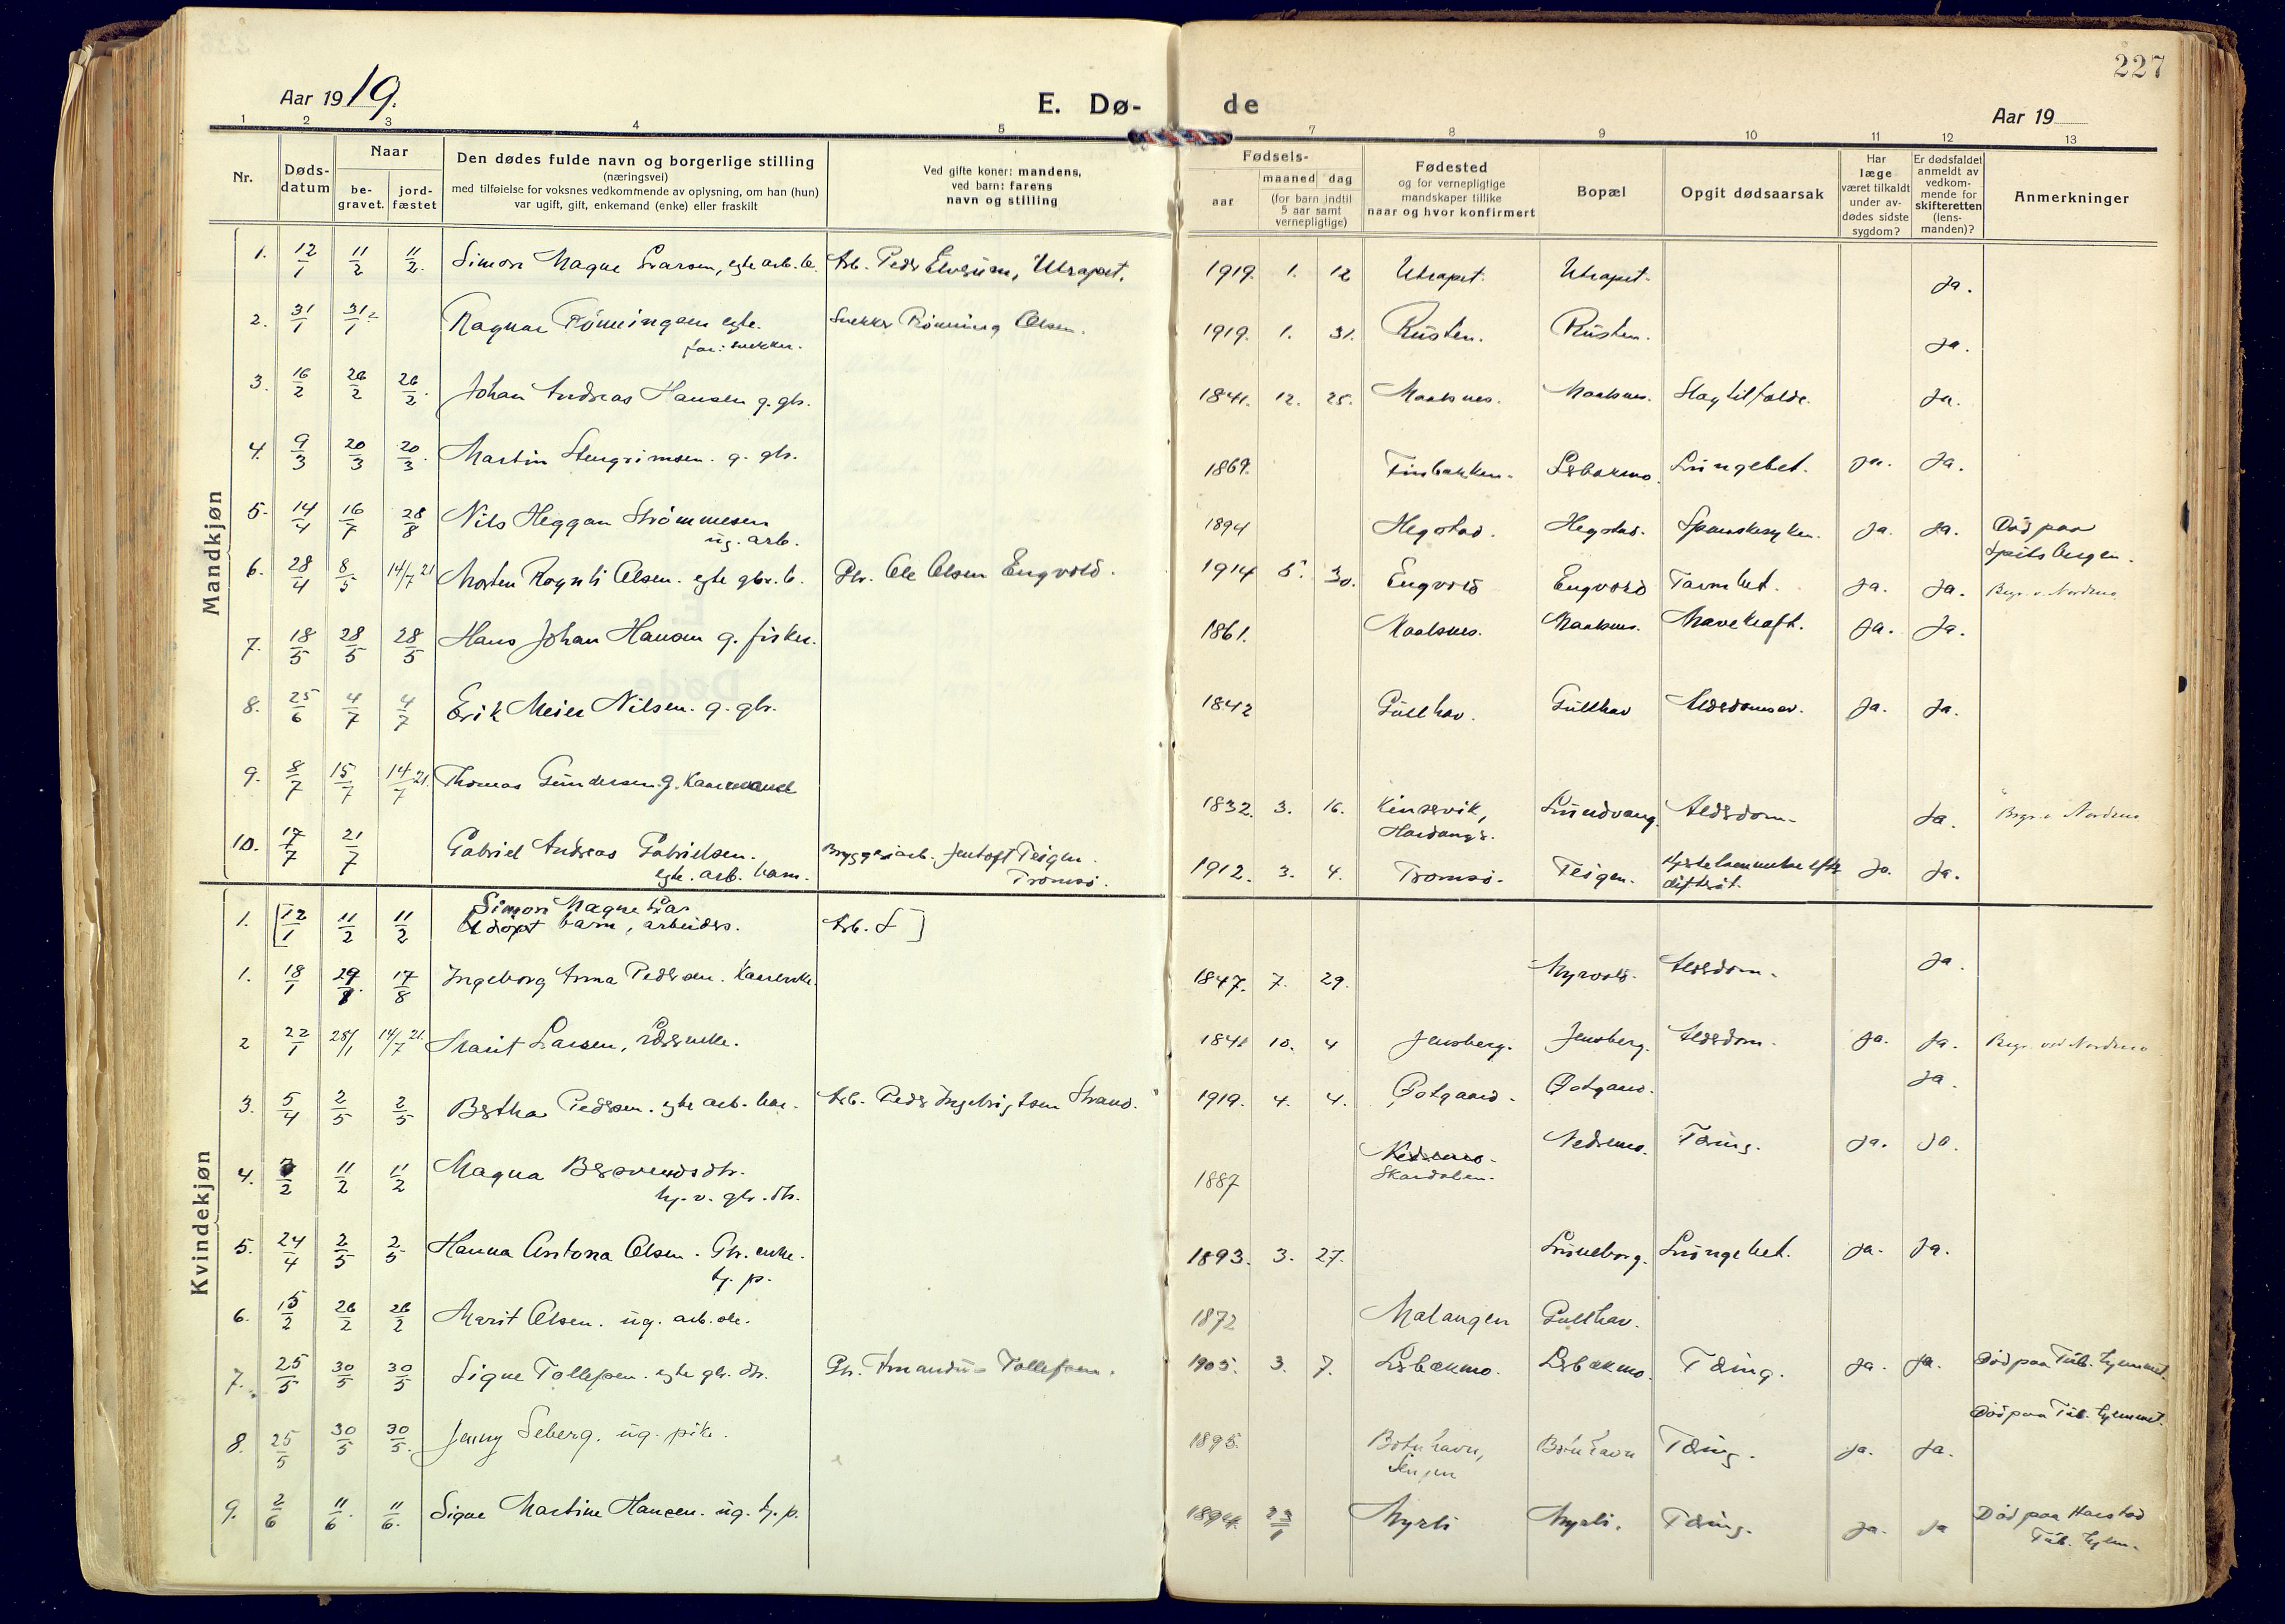 227
Aar 1919.
E. Dø- de
Aar 19
1 2 3 4 5 7 8 9 10 11 12 13
Nr.
Døds-
datum
Naar
be-
gravet.
jord-
fæstet
Den dødes fulde navn og borgerlige stilling
(næringsvei)
med tilføielse for voksnes vedkommende av oplysning, om han (hun)
var ugift, gift, enkemand (enke) eller fraskilt
Ved gifte koner: mandens,
ved barn: farens
navn og stilling
Fødsels-
aar
maaned dag
(for barn indtil
5 aar samt
vernepligtige)
Fødested
og for vernepligtige
mandskaper tillike
naar og hvor konfirmert
Bopæl
Opgit dødsaarsak
Har
læge
været tilkaldt
under av-
dødes sidste
sygdom?
Er dødsfaldet
anmeldt av
vedkom-
mende for
skifteretten
(lens-
manden)?
Anmerkninger
Mandkjøn
1. 12/1 11/2 11/2. Simon Magne Larsen, egte arb. b. Arb. Peder Elverum, Utropet. 1919. 1. 12 Utropet. Utropet. Ja.
2. 31/1 31/1 Ragnar Rønningen egte. Snekker Rønning Olsen. 1919. 1. 31. Rusten. Rusten. Ja.
far: snekker.
3. 16/2 26/2 26/2. Johan Andreas Hansen g. gbr. 1841. 12. 25. Maalsnes. Maalsnes. Slagtilfælde. Ja.
4. 9/3 20/3 20/3. Martin Stengrimsen. g. gbr. 1867. Finbakken. Lsbakmo. Lungebet. Ja. Ja.
5. 14/4 16/7 28/8 Nils Heggan Strømmesen 1894 Hegstad. Hegstad. Spanskesyken. Ja. Ja. Død paa
ug. arb. Spitsbergen.
6. 28/4 8/5 14/7 21 Morten Rognli Olsen. egte gbr. b. Gbr. Ole Olsen Engvold. 1914 5. 30. Engvold Engvold Tarmbet. Ja. Ja. Begr. v. Nordmo.
7. 18/5 28/5 28/5 Hans Johan Hansen g. fisker. 1861. Maalsnes. Maalsnes. Mavekræft. Ja. Ja.
8. 25/6 4/7 4/7 Erik Meier Nilsen. g. gbr. 1842 Gullhav. Gullhav Alderdomssv. Ja. Ja.
9. 8/7 15/7 14/7 21. Thomas Gundersen. g. Kaarmand 1832. 3. 16. Kinservik, Lundvang. Alderdom. Ja. Begr. v. Nordmo
Hardanger.
10. 17/7 21/7 Gabriel Andreas Gabrielsen. Bryggeriarb. Jentoft Teigen. 1912. 3. 4. Tromsø. Teigen. Hjertelammelse efter Ja. Ja.
egte. arb. barn. Tromsø. difterit.
Kvindekjøn
1. [12/1 11/2 11/2 Simon Magne Lar
Adopt barn, arbeiders. Arb. L ]
1. 18/1 29/8. 17/8 Ingeborg Anna Pedersen. Kaarenke. 1847. 7. 29. Myrvold. Alderdom. Ja.
2 22/1 28/1 14/7 21. Marit Larsen, enke. 1841 10. 4 Jensberg. Jensberg. Alderdom. Ja. Ja. Begr. ved Nordmo
3. 5/4 2/5 2/5 Bertha Pedersen. egte arb. bar. Arb. Peder Ingebrigtsen Strand. 1919. 4. 4. Gotgaard. Gotgaard. Ja.
4. 3/2 11/2 11/2 Magna Bersvendsdtr. 1887 Nedremo. Nedremo. Tæring. Ja. Ja.
hj. v. gbr. dtr. Skardalen.
5. 24/4 2/5 2/5 Hanna Antona Olsen. Gbr. enke. 1893. 3. 27. Luneborg. Lungebet. Ja. Ja.
tj. p.
6. 15/2 26/2 26/2 Marit Olsen. ug. arb. 1872 Malangen Gullhav.
7. 25/5 30/5 30/5 Signe Tollefsen. egte gbr. dtr. Gbr. Amandus Tollefsen. 1905. 3. 7. Lsbakmo. Lsbakmo. Tæring. Ja. Ja. Død paa Tub. hjemmet.
8. 25/5 30/5 30/5. Jenny Seberg. ug. pike. 1895. Botnhavn, Botnhavn Tæring. Ja. Ja. Død paa Tub. hjemmet.
Senjen
9. 2/6 11/6. 11/6. Signe Martine Hansen. ug. tj. p. 1894. 23/1 Myrli Myrli. Tæring. Ja. Ja Død paa Harstad
Tub. hjem.